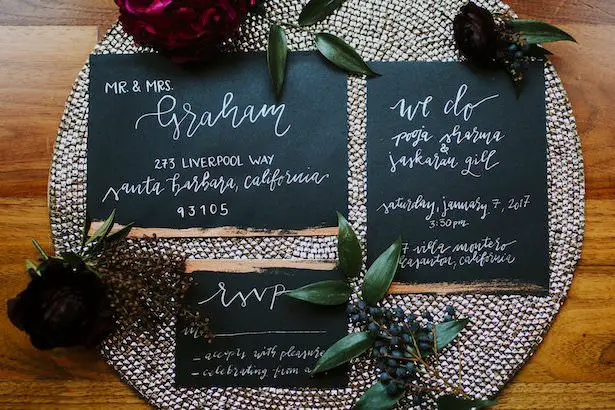 MR. & MRS.
Graham
273 LIVERPOOL WAY
santa barbara, california
93105
we do
pooja sharma
&
jaskaran gill
saturday, january 7, 2017
3:30 pm
7 villa montero
pleasanton, california
rsvp
m
- accepts with pleasure
- celebrating from a